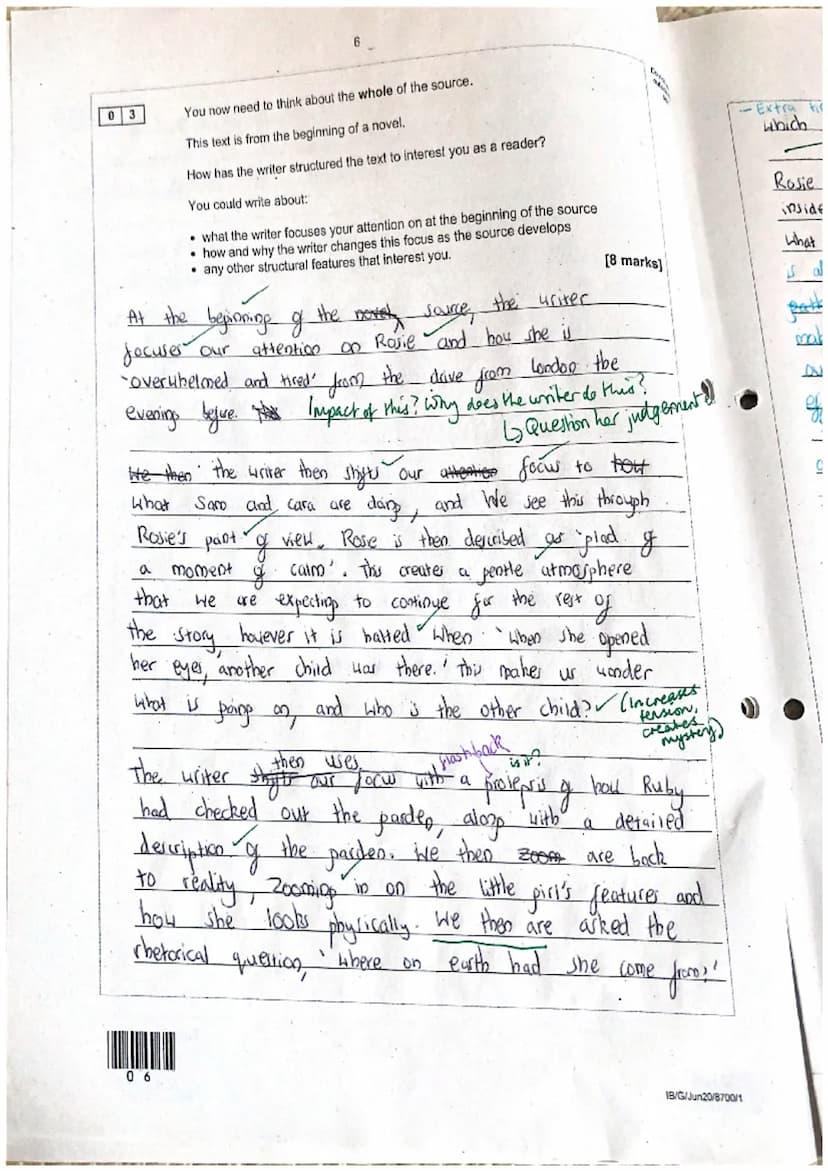 6
0 3
You now need to think about the whole of the source.
This text is from the beginning of a novel.
How has the writer structured the text to interest you as a reader?
You could write about:
• what the writer focuses your attention on at the beginning of the source
• how and why the writer changes this focus as the source develops
• any other structural features that interest you.
[8 marks]
At the beginning of the novel source, the writer
focuses our attention on Rosie and how she is
'overwhelmed and tired' from the drive from London the
evening before.
Impact of this? Why does the writer do this?
↳ Question her judgement
We then the writer then shifts our attention focus to how
what Sam and Cara are doing, and we see this through
Rosie's point of view. Rosie is then described as 'glad of
a moment of calm'. This creates a gentle atmosphere
that we are expecting to continue for the rest of
the story, however it is halted when 'when she opened
her eyes, another child was there.' This makes us wonder
what is going on, and who is the other child?
(increases
tension,
creates
mystery)
flashback
is it?
The writer then uses our focus with a prolepsis of how Ruby
had checked out the garden, along with a detailed
description of the garden. We then zoom are back
to reality, zooming in on the little girl's features and
how she looks physically. We then are asked the
rhetorical question, 'where on earth had she come from?'
0 6
IB/G/Jun20/8700/1
- Extra
which
Rosie
inside
what
is